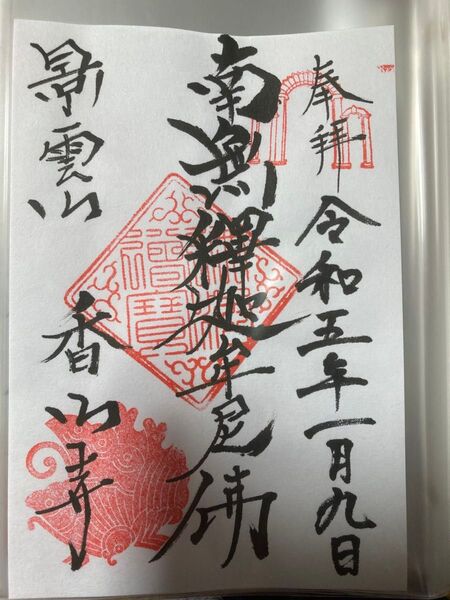 奉拝 令和五年一月九日
南無釋迦牟尼佛
景雲山 香山寺